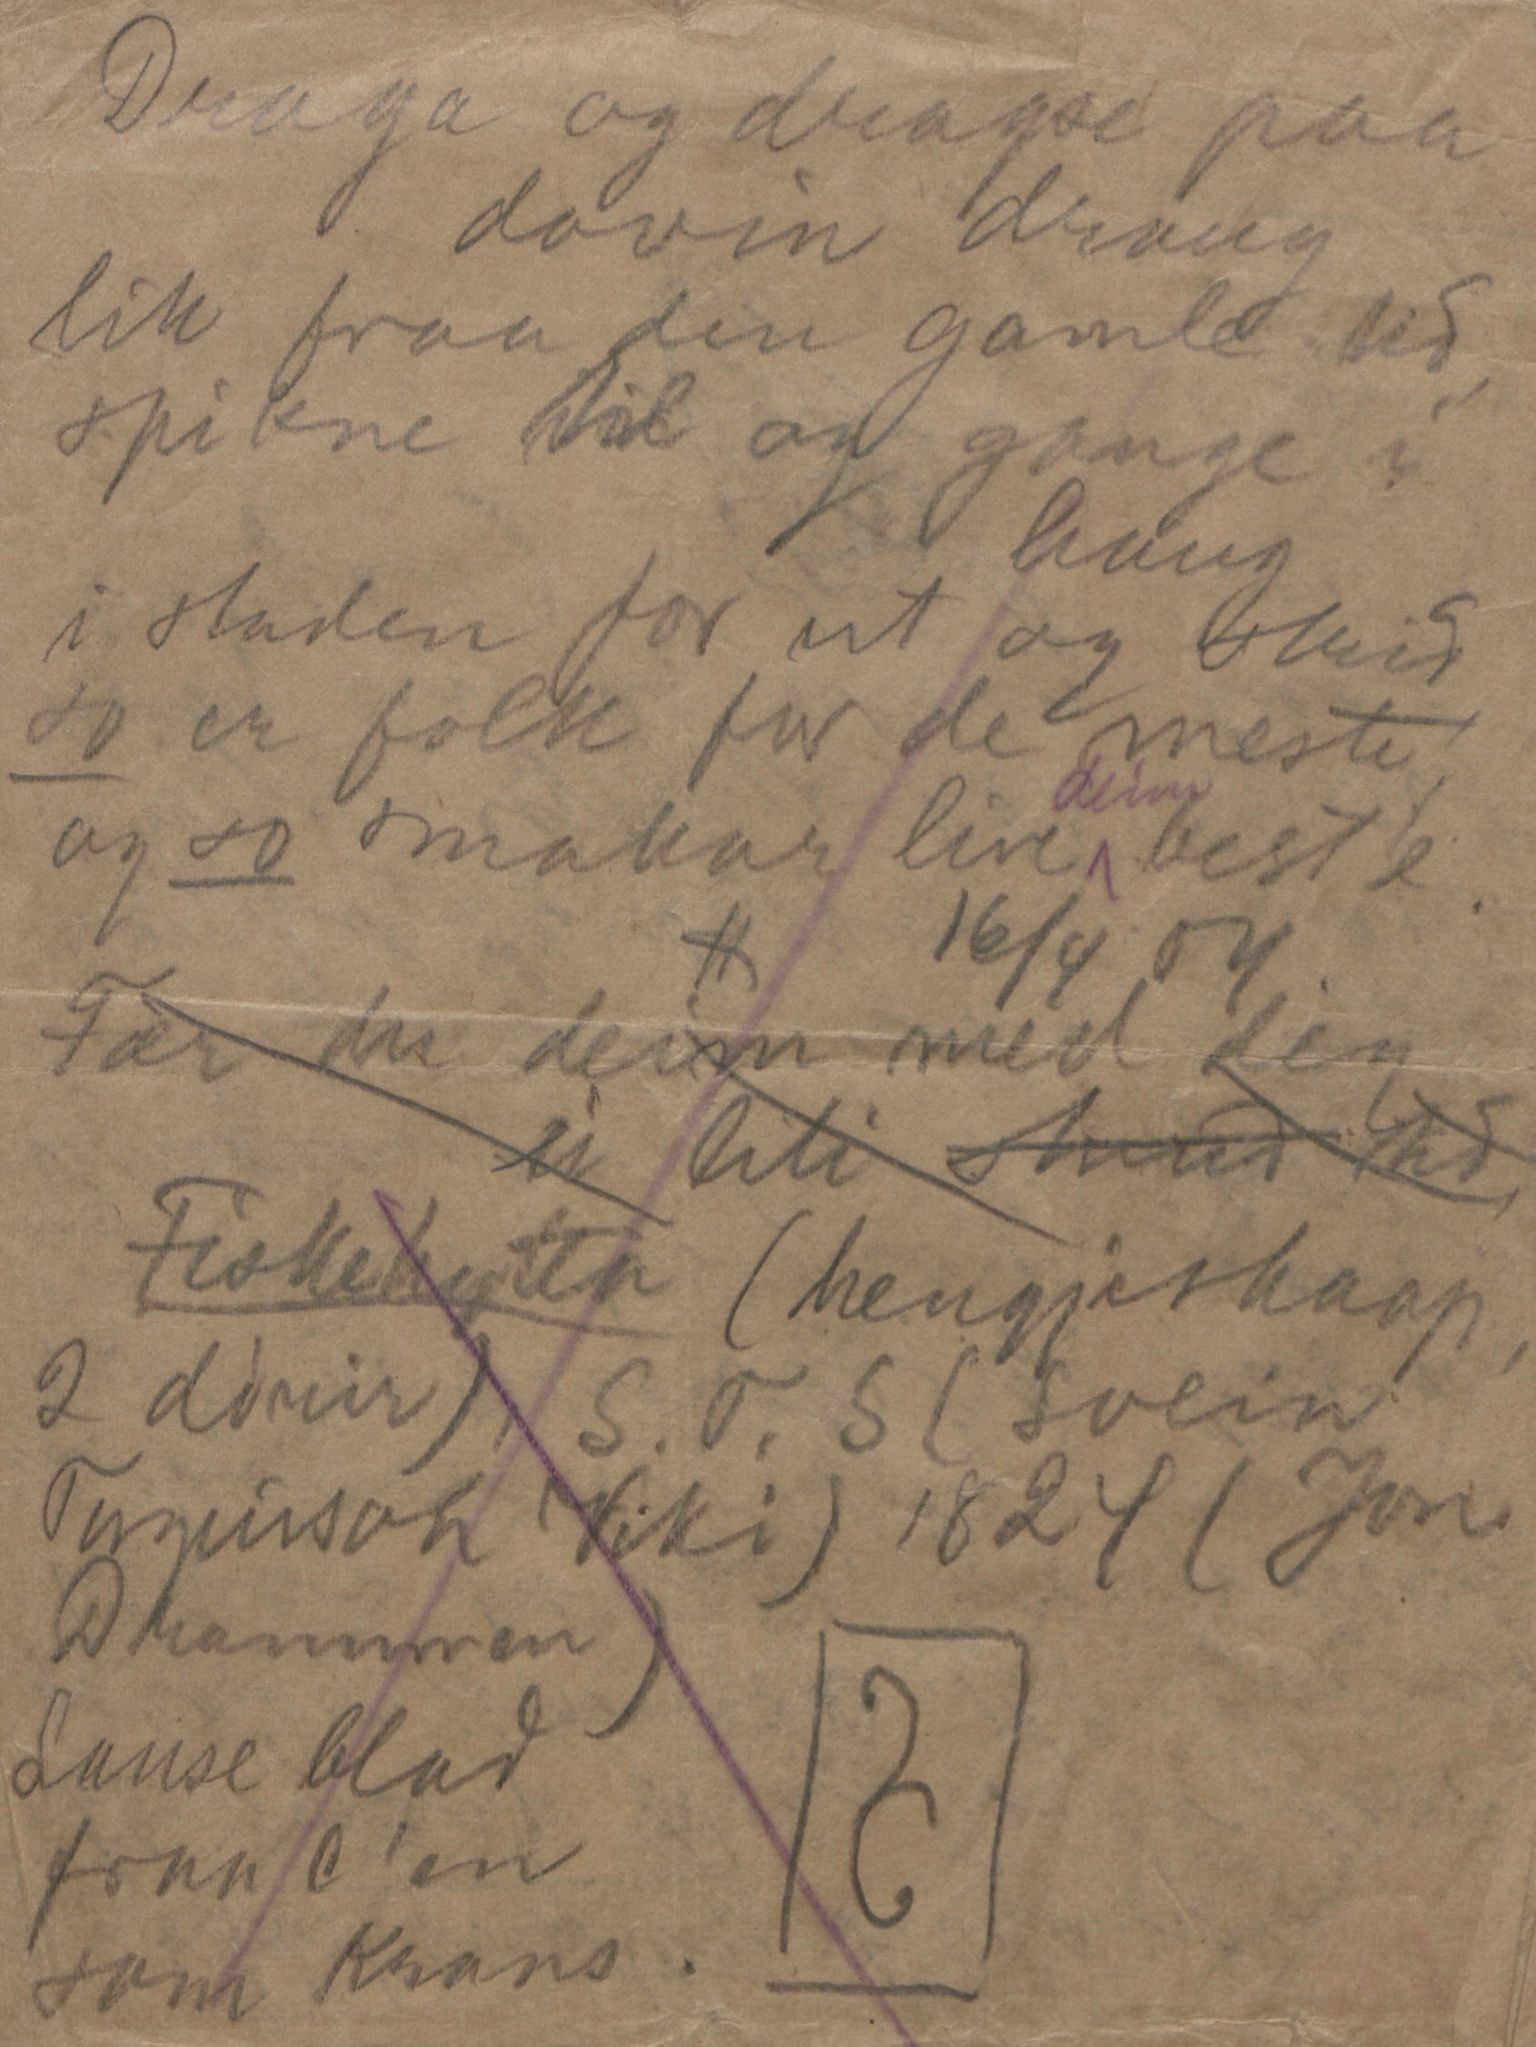 Draga og dragse paa
dovin draug
lik fraa den gamle tid,
spikne til og gange i
haug
i staden for ut og skrid
so er folk for de meste,
og so smakar live deim best'e.
16/4 54
Fær du deim med deg
ei liti stund tid,
Fiskekytta (hengjeskaap,
2 dører), S. T. S (Svein
Torgeirson Viki) 1824 (Jon
Drammen)
Lause blad
fraa C'en
som Krans.
2
C